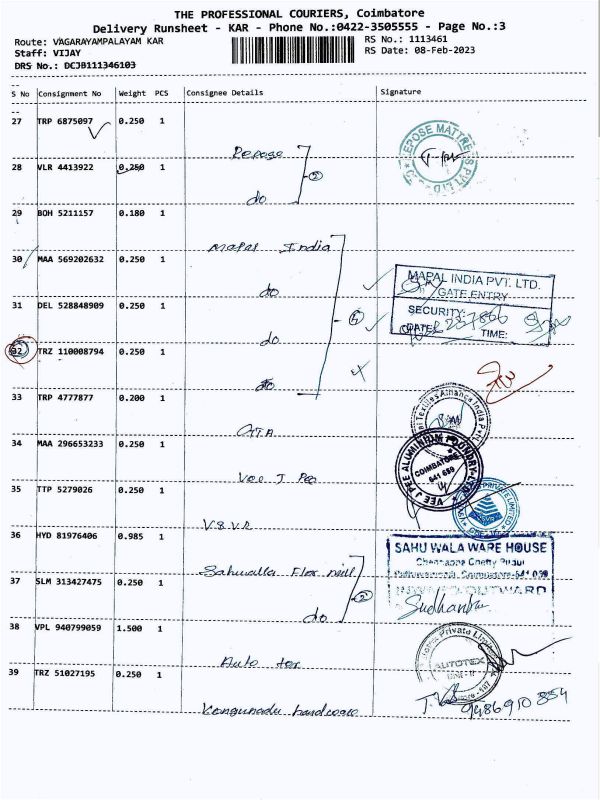 THE PROFESSIONAL COURIERS, Coimbatore
Delivery Runsheet - KAR - Phone No.:0422-3505555 - Page No.:3
Route: VAGARAYAMPALAYAM KAR
RS No.: 1113461
Staff: VIJAY
RS Date: 08-Feb-2023
DRS No.: DCJB111346103
S No Consignment No Weight PCS Consignee Details Signature
27 TRP 6875097 0.250 1 Repose
REPOSE MATTRESS PVT LTD
28 VLR 4413922 0.250 1 do
2
29 BOH 5211157 0.180 1 Mapal India
30 MAA 569202632 0.250 1 do
MAPAL INDIA PVT. LTD.
GATE ENTRY
31 DEL 528848909 0.250 1 do
5
SECURITY:
DATE:
TIME:
32 TRZ 110008794 0.250 1 do
4
33 TRP 4777877 0.200 1
Textiles Alliance India Pvt
34 MAA 296653233 0.250 1 Vee J Pee
VEE J PEE ALUMINIUM FOUNDRY
COIMBATORE
641 659
35 TTP 5279026 0.250 1 V.S.V.R
PRIVATE LIMITED
36 HYD 81976406 0.985 1 Sahuwalla Flor mill
SAHU WALA WARE HOUSE
Chetty Pudur
Coimbatore
37 SLM 313427475 0.250 1 do
2
Sudhantra
38 VPL 940799059 1.500 1 Auto tex
Private Limited
AUTOTEX
UNIT-II
39 TRZ 51027195 0.250 1 Kongunadu hardware
9486910854